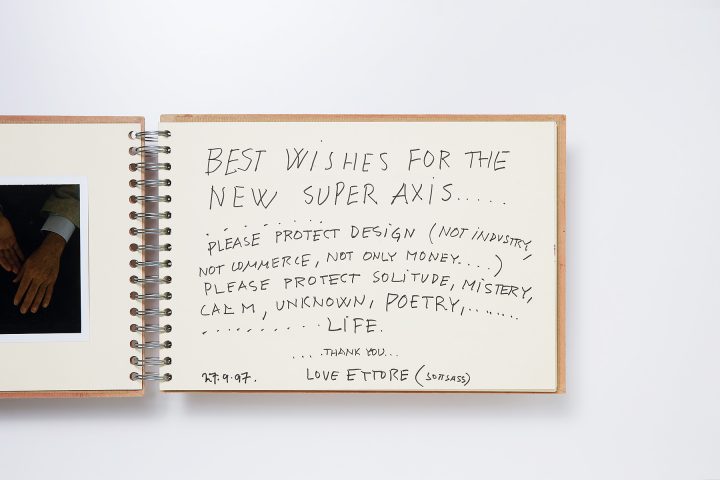 BEST WISHES FOR THE
NEW SUPER AXIS.....
.........
PLEASE PROTECT DESIGN (NOT INDUSTRY,
NOT COMMERCE, NOT ONLY MONEY....)
PLEASE PROTECT SOLITUDE, MISTERY,
CALM, UNKNOWN, POETRY,.......
..........LIFE.
....THANK YOU...
27.9.97. LOVE ETTORE (SOTTSASS)